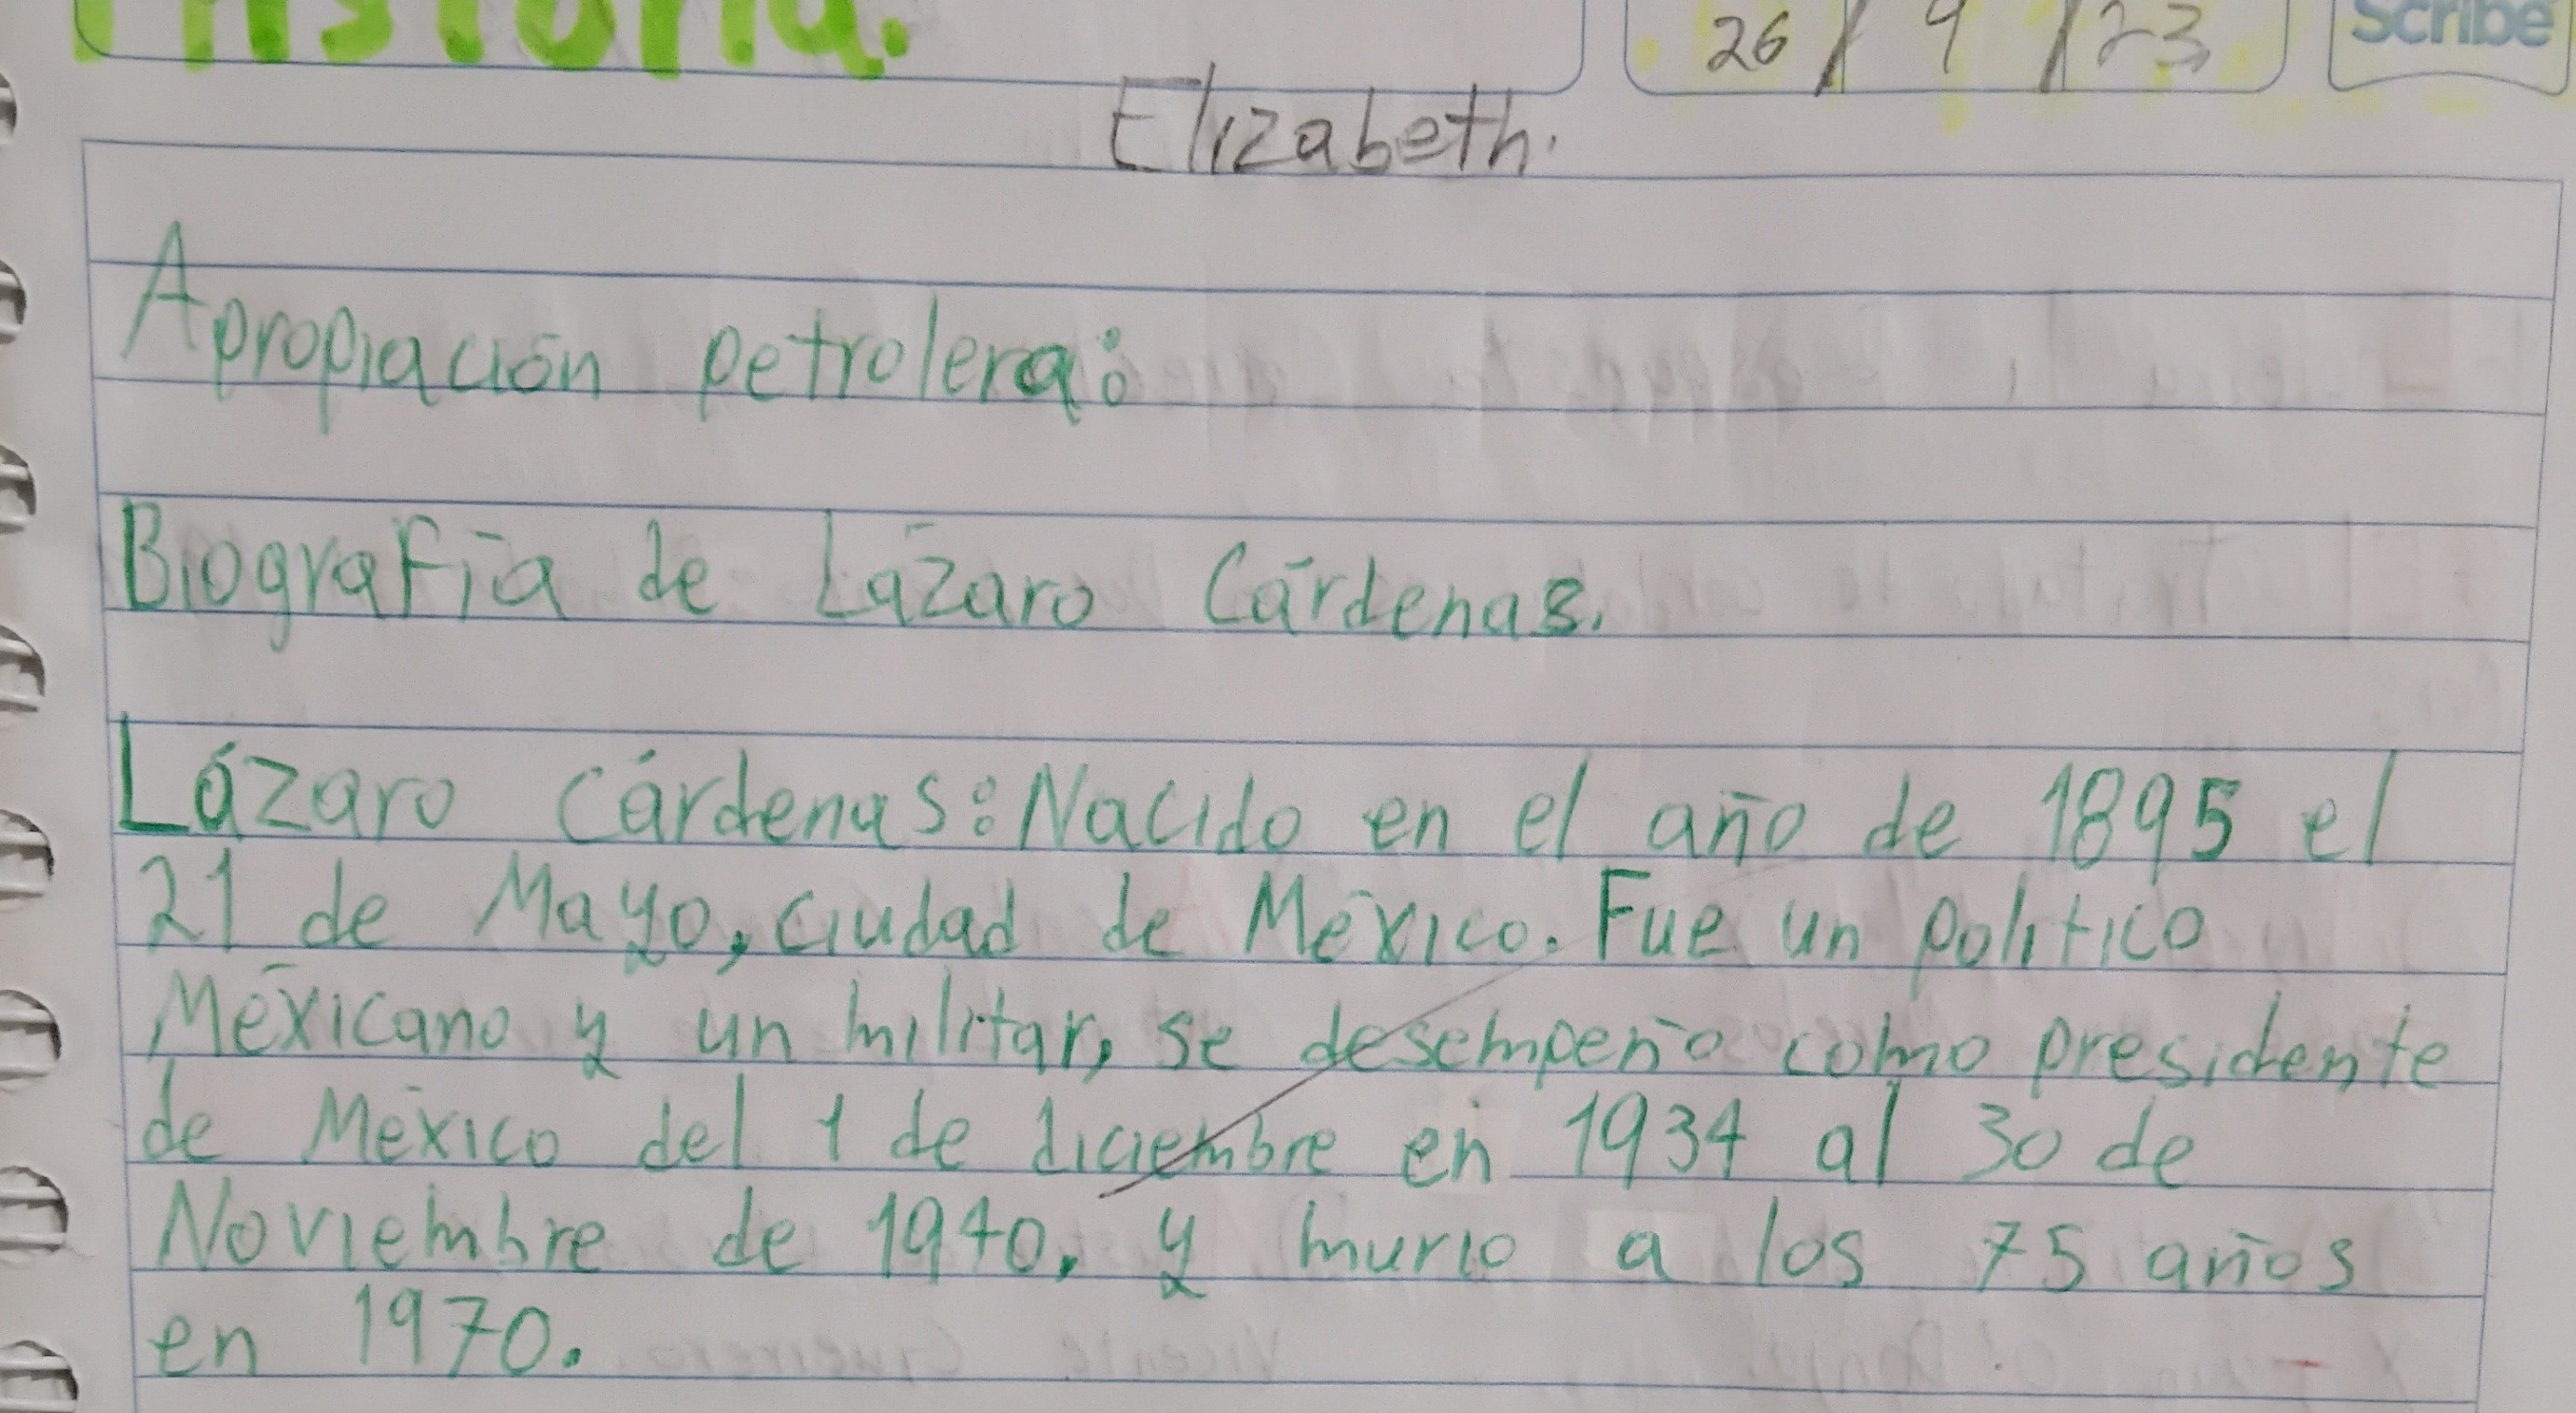 Historia.
26 / 9 / 23
Scribe
Elizabeth.
Apropiación petrolera:
Biografía de Lázaro Cárdenas.
Lázaro Cárdenas: Nacido en el año de 1895 el
21 de Mayo, ciudad de México. Fue un politico
Méxicano y un militar, se desempeño como presidente
de México del 1 de diciembre en 1934 al 30 de
Noviembre de 1940. y murio a los 75 años
en 1970.